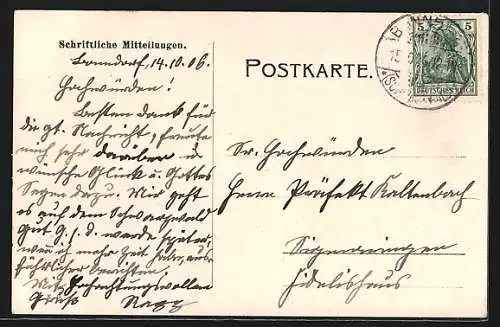 Schriftliche Mitteilungen.
Bonndorf, 14.10.06.
Hochwürden!
Besten Dank für
die gt. Nachricht, freute
mich sehr darüber u.
wünsche Glück u. Gottes
Segen dazu. Mir geht
es auf dem Schwarzwald
gut G. s. d. werde später,
wenn ich mehr Zeit habe, aus-
führlicher berichten.
Mit hochachtungsvollem
Gruß
POSTKARTE.
5 5
DEUTSCHES REICH
Sr. Hochwürden
Herrn Präfekt Kaltenbach
Sigmaringen
Fidelishaus